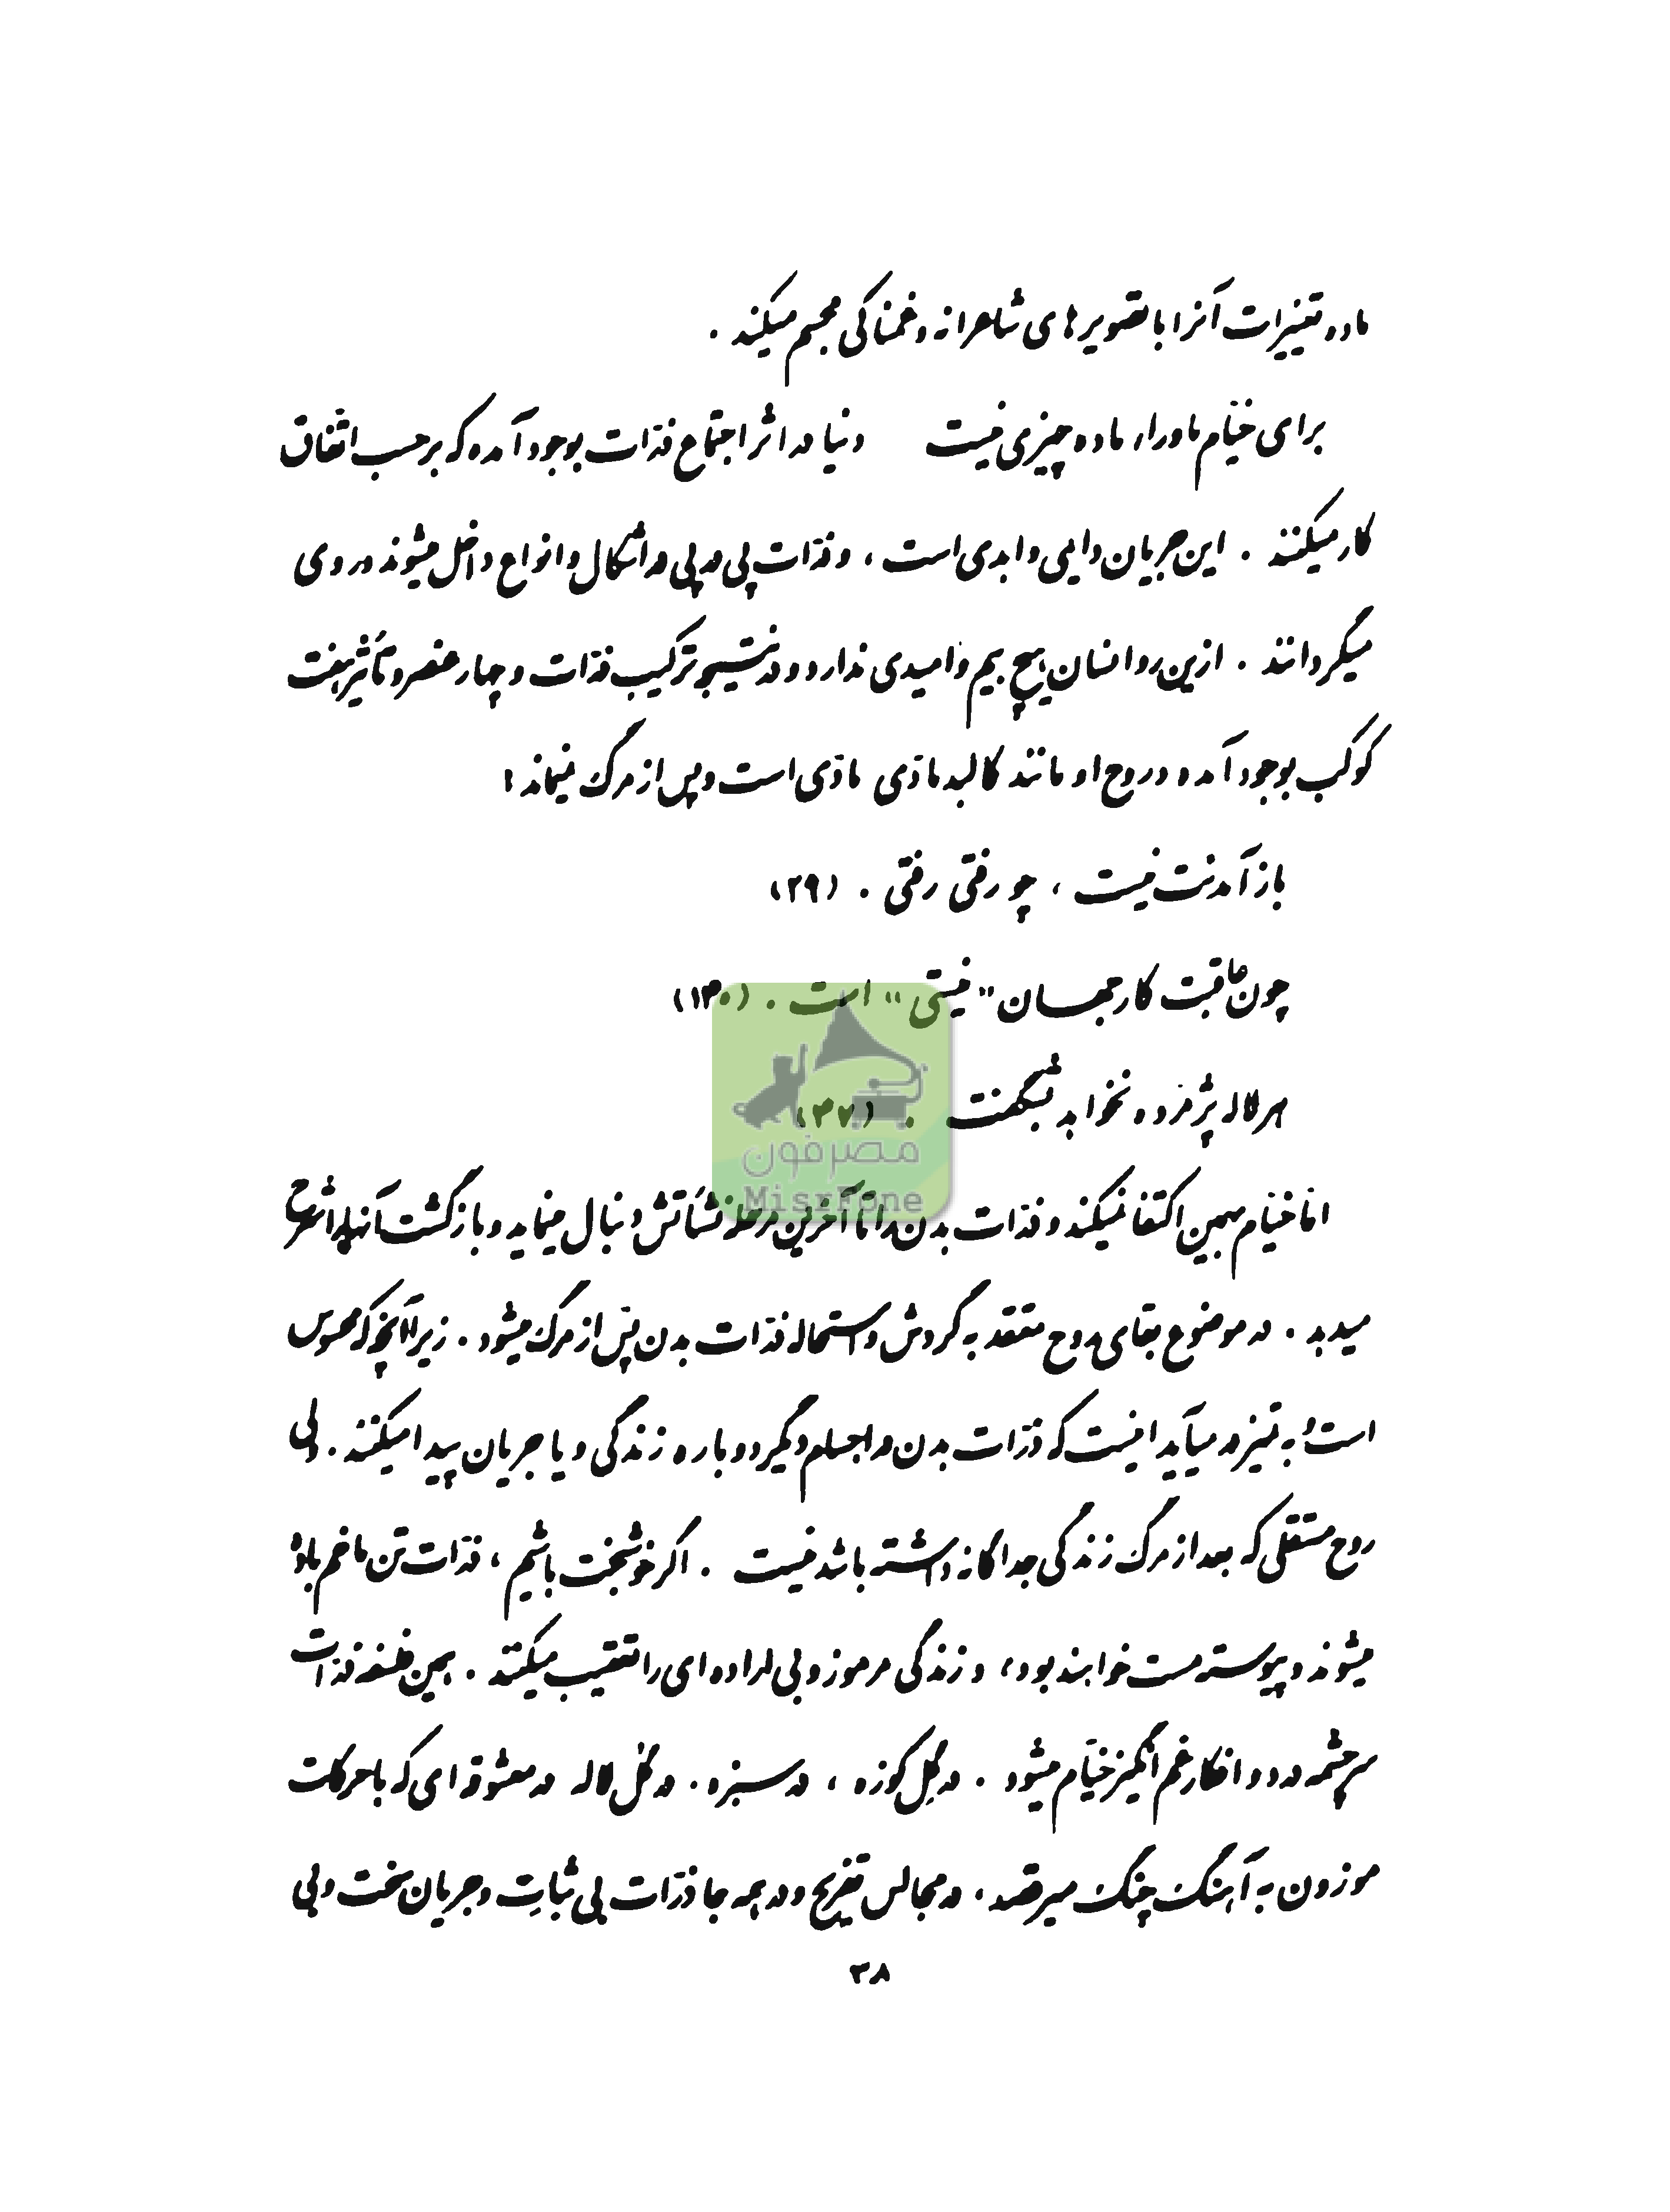 ماده تغییرات آنرا با تصویرهای شاعرانه و غمناکی مجسم میکند .
برای خیّام ماوراء ماده چیزی نیست دنیا در اثر اجتماع ذرّات بوجود آمده که برحسب اتّفاق
کار میکنند . این جریان دایمی و ابدی است ، و ذرّات پی در پی در اشکال و انواع داخل میشوند و روی
میگردانند . ازین رو انسان هیچ بیم و امیدی ندارد و در نتیجه ترکیب ذرّات و چهار عنصر و تأثیر هفت
کوکب بوجود آمده و روح او مانند کالبد مادّی مادّی است و پس از مرگ نمیماند :
باز آمدنت نیست ، چو رفتی رفتی . (۲۹)
چون عاقبت کار جهان "نیستی" است . (۱۴۰)
هر لاله پژمرده نخواهد شگفت . (۳۷)
امّا خیّام بهمین اکتفا نمیکند و ذرّات بدن را تا آخرین مرحله نشأتش دنبال مینماید و بازگشت آنها را شرح
میدهد . در موضوع بقای روح معتقد به گردش و استحاله ذرّات بدن پس از مرگ میشود . زیرا آنچه که محسوس
است و به تمیز در میآید اینست که ذرّات بدن در اجسام دیگر دوباره زندگی و یا جریان پیدا میکنند . ولی
روح مستقلی که بعد از مرگ زندگی جداگانه داشته باشد نیست . اگر خوشبخت باشیم ، ذرّات تن ما خم باده
میشوند و پیوسته مست خواهند بود ، و زندگی مرموز و بی اراده ای را تعقیب میکنند . همین فلسفه ذرّات
سرچشمه درد و افکار غم انگیز خیّام میشود . در گِل کوزه ، در سبزه . در گل لاله در معشوقه ای که با حرکات
موزون به آهنگ چنگ میرقصد ، در مجالس تفریح و در همه جا ذرّات بی ثبات و جریان سخت و بی
۳۸
مصرفون
MisrFone